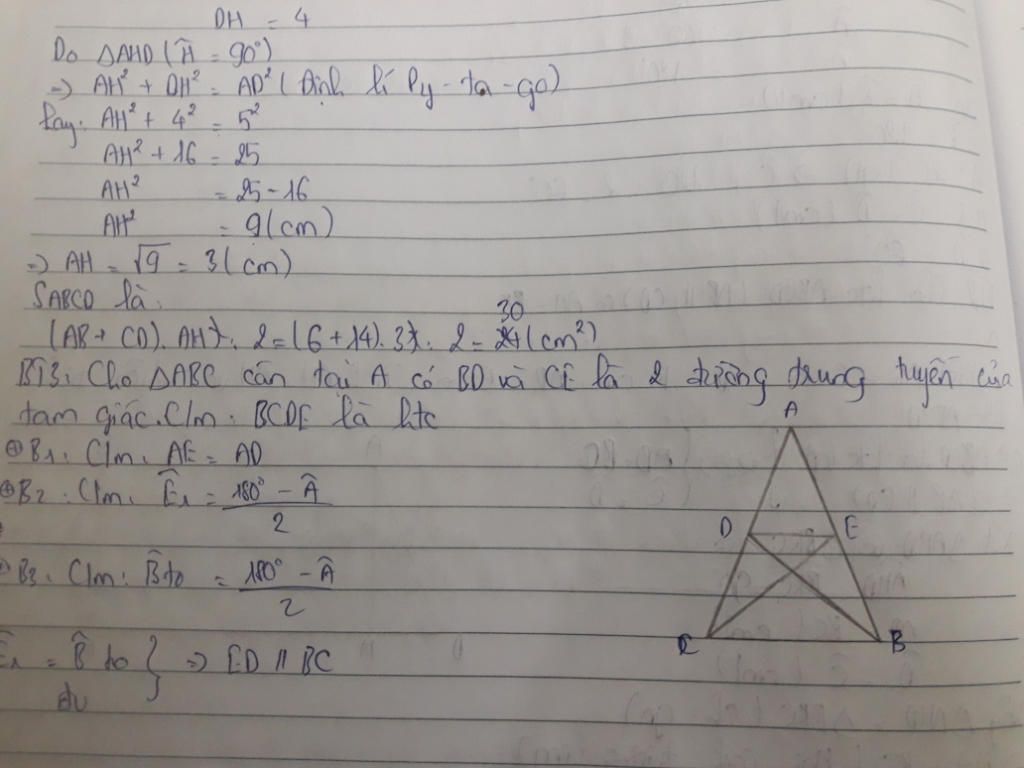 DH = 4
Do ΔAHD (Ĥ = 90°)
=> AH² + DH² = AD² (Định lí Py - ta - go)
Thay: AH² + 4² = 5²
AH² + 16 = 25
AH² = 25 - 16
AH² = 9 (cm)
=> AH = √9 = 3 (cm)
SABCD là:
(AB + CD). AH : 2 = (6 + 14). 3 : 2 = 30 (cm²)
BT3: Cho ΔABC cân tại A có BD và CE là 2 đường trung tuyến của
tam giác. C/m: BCDE là htc
⊕ B1: C/m: AE = AD
⊕ B2: C/m: Ê₁ = (180° - Â)/2
B3: C/m: B̂ to = (180° - Â)/2
Ê₁ = B̂ to } => ED // BC
đv
A
D E
C B